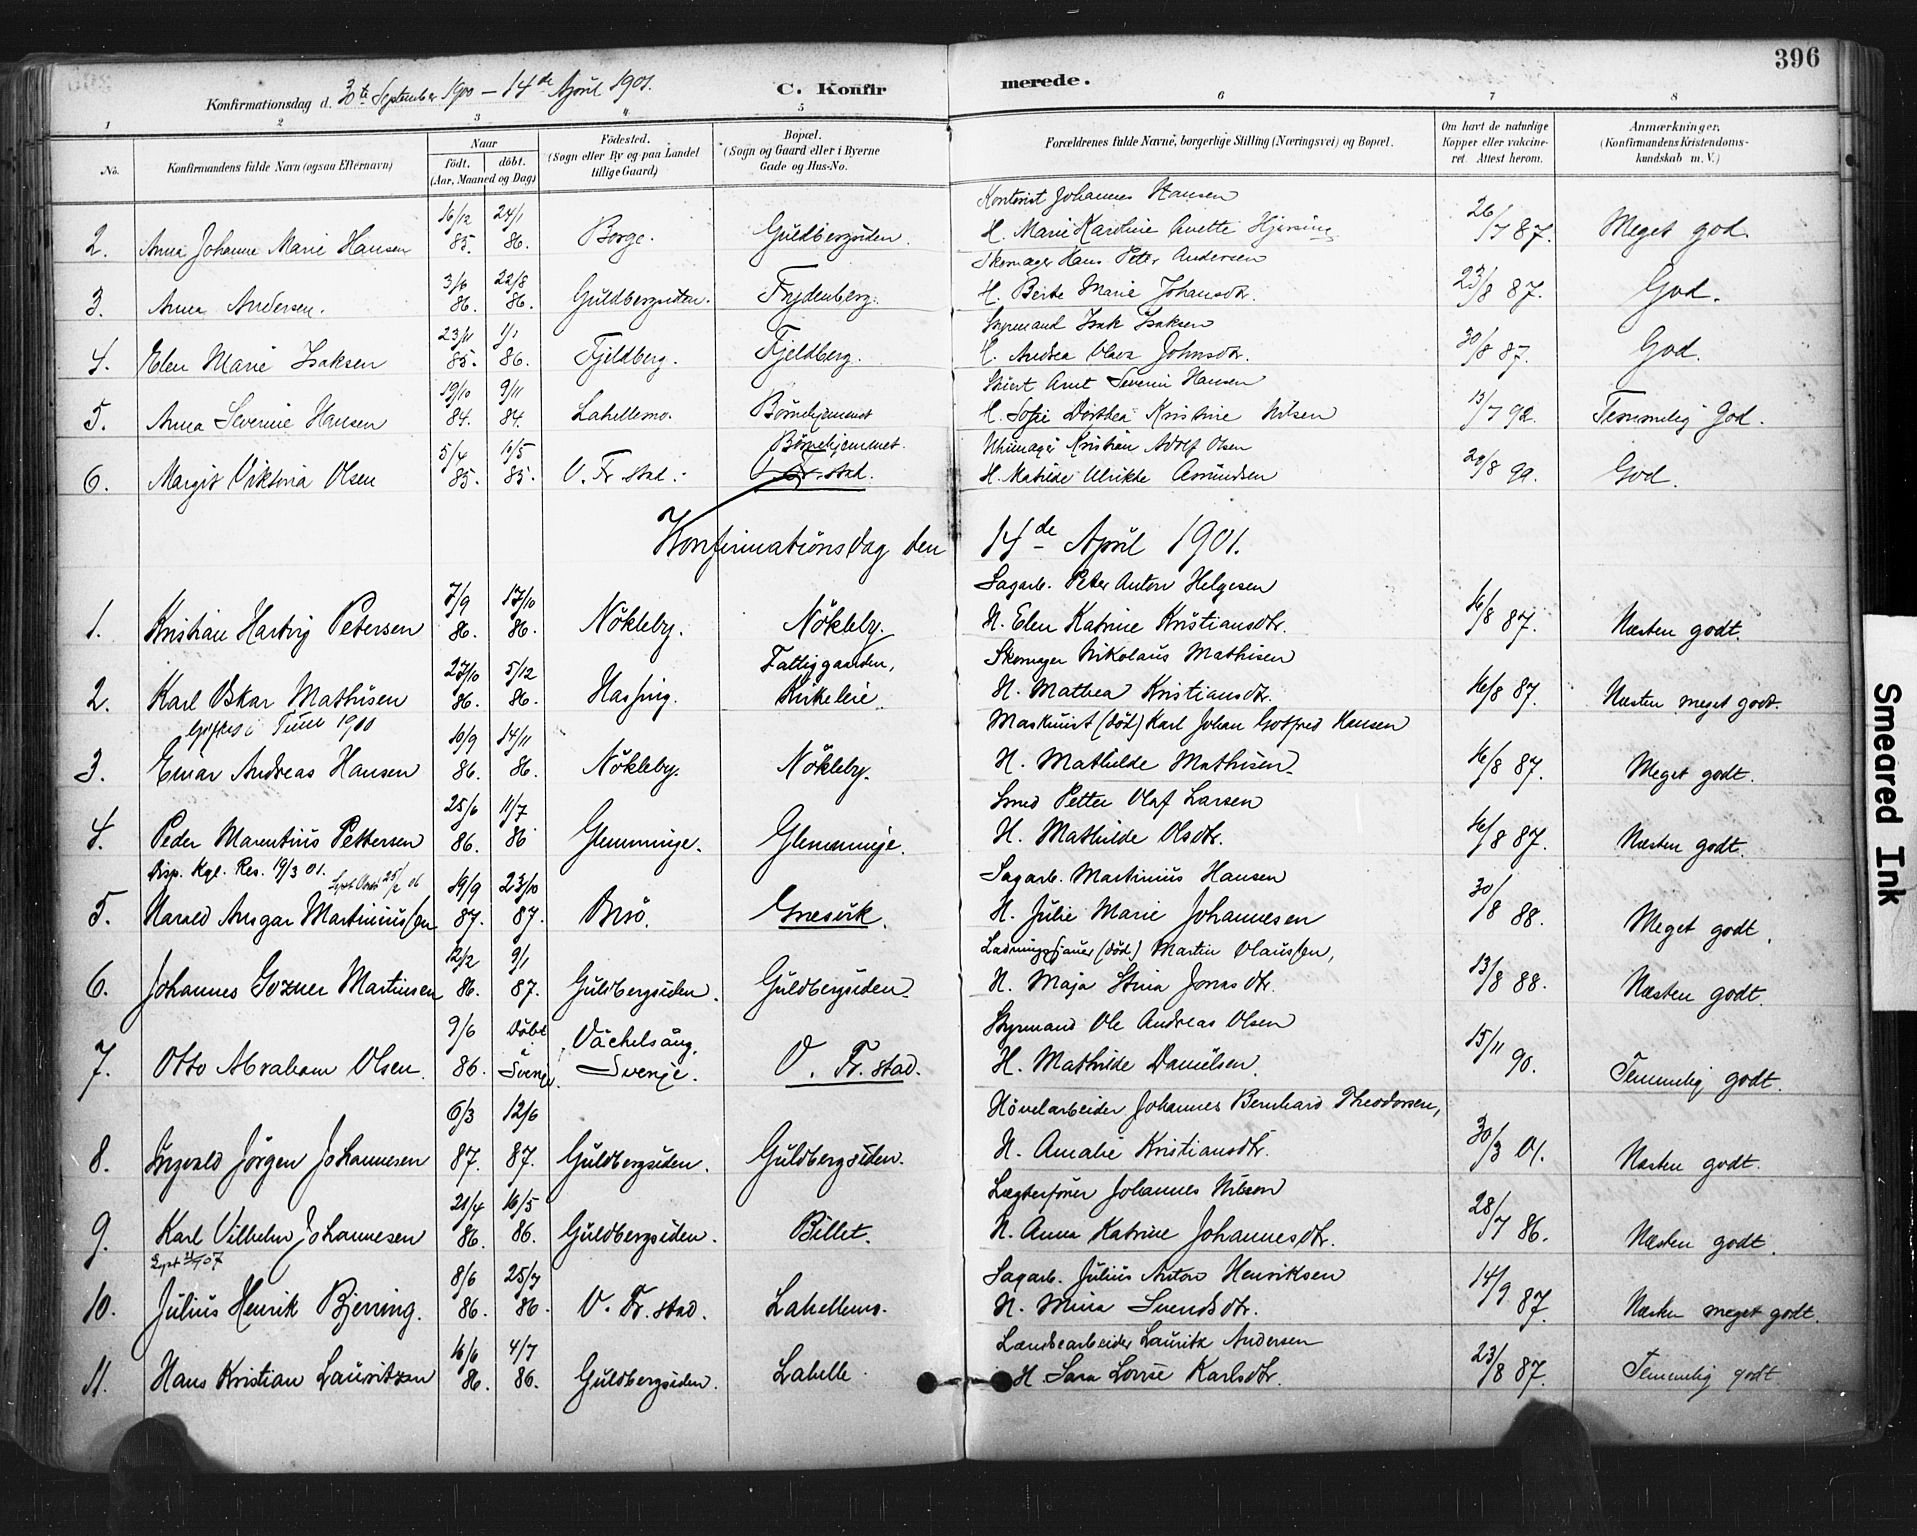 396
Konfirmationsdag d. 30te September 1900 – 14de April 1901.
C. Konfirmerede.
1 2 3 4 5 6 7 8
No.
Konfirmandens fulde Navn (ogsaa Efternavn)
Naar
født. døbt.
(Aar, Maaned og Dag)
Fødested.
(Sogn eller By og paa Landet
tillige Gaard)
Bopæl.
(Sogn og Gaard eller i Byerne
Gade og Hus-No.
Forældrenes fulde Navne, borgerlige Stilling (Næringsvei) og Bopæl.
Om havt de naturlige
Kopper eller vakcine-
ret. Attest herom.
Anmærkninger.
(Konfirmandens Kristendoms-
kundskab m. V.)
Kontorist Johannes Hansen
2. Anna Johanne Marie Hansen 16/12 85. 24/1 86. Borge. Guldbergsiden. H. Marie Karoline Anette 26/7 87. Meget god.
Skomager Hans Peter Andersen
3. Anna Andersen. 3/6 86. 22/8 86. Guldbergsiden. Frydenberg. H. Berte Marie Johansdtr. 23/8 87. God.
Styrmand Isak Isaksen
4. Elen Marie Isaksen 23/11 85. 1/1 86. Fjeldberg. Fjeldberg. H. Andrea Olava Johnsdtr. 30/8 87. God.
Arnt Severin Hansen
5. Anna Severine Hansen 19/10 84. 9/11 84. Lahellemo. Børnehjemmet H. Sofie Dorthea Kristine Nilsen 13/7 92. Temmelig God.
Børnehjemmet. Uhrmager Kristian Adolf Olsen
6. Margit Viktoria Olsen 5/4 85. 10/5 85. V. Fr. stad. V. Fr. stad. H. Matilde Ulrikke Asmundsen 29/8 99. God.
Konfirmationsdag den 14de April 1901.
Sagarb. Peter Anton Helgesen
1. Kristian Hartvig Petersen 7/9 86. 17/10 86. Nökleby. Nökleby. H. Elen Katrine Kristiansdtr. 16/8 87. Næsten godt.
Fattiggaarden, Skomager Nikolaus Mathisen
2. Karl Oskar Mathisen 27/10 86. 5/12 86. Hassing. Kirkeleie H. Mathea Kristiansdtr. 16/8 87. Næsten meget godt.
i Tune 1900 Maskinist (död) Karl Johan Gotfred Hansen
3. Einar Andreas Hansen 10/9 86. 14/11 86. Nökleby. Nökleby. H. Mathilde Mathisen. 16/8 87. Meget godt.
Smed Petter Olaf Larsen
4. Peder Marentius Pettersen 25/6 86. 11/7 86 Glemminge. Glemminge. H. Mathilde Olsdtr. 16/8 87. Næsten godt.
Disp. Kgl. Res. 19/3 01. Sagarb. Martinius Hansen
5. Harald Ansgar Martiniussen 19/9 87. 23/10 87. Gresvik. H. Julie Marie Johannesen 30/8 88. Meget godt.
(död) Martin Olaussen,
6. Johannes Gozner Martinsen 12/2 86. 9/1 87. Guldbergsiden. Guldbergsiden. H. Maja Stina Jonasdtr. 13/8 88. Næsten godt.
Styrmand Ole Andreas Olsen
7. Otto Abraham Olsen. 9/6 86. Döbt Sverige. Väckelsång, Sverige. V. Fr. stad. H. Mathilde Danielsen. 15/11 90. Temmelig godt.
Hövelarbeider Johannes Bernhard Theodorsen,
8. Ingvald Jörgen Johannesen 6/3 87. 12/6 87. Guldbergsiden. Guldbergsiden. H. Amalie Kristiansdtr. 30/3 01. Næsten godt.
Lægterförer Johannes Nilson
9. Karl Vilhelm Johannesen 21/4 86. 16/5 86. Guldbergsiden. Billet. H. Anna Katrine Johannesdtr. 28/7 86. Næsten godt.
Sagarb. Julius Anton Henriksen
10. Julius Henrik Bjerring. 8/6 86. 25/7 86. V. Fr. stad. Lahellemo. H. Mina Svendsdtr. 14/9 87. Næsten meget godt.
Landsearbeider Lauritz Andersen
11. Hans Kristian Lauritzen 16/6 86. 4/7 86. Guldbergsiden. Lahelle. H. Sara Lovise Karlsdtr. 23/8 87. Temmelig godt.
Smeared Ink